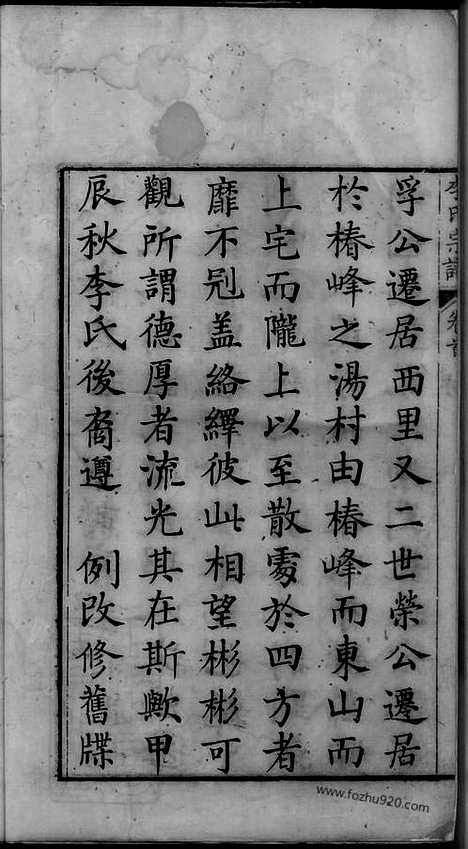 李氏宗譜 卷首
孚公遷居西里又二世榮公遷居
於椿峰之湯村由椿峰而東山而
上宅而隴上以至散處於四方者
靡不剋盖絡繹彼此相望彬彬可
觀所謂德厚者流光其在斯歟甲
辰秋李氏後裔遵 例改修舊牒
www.fozhu920.com